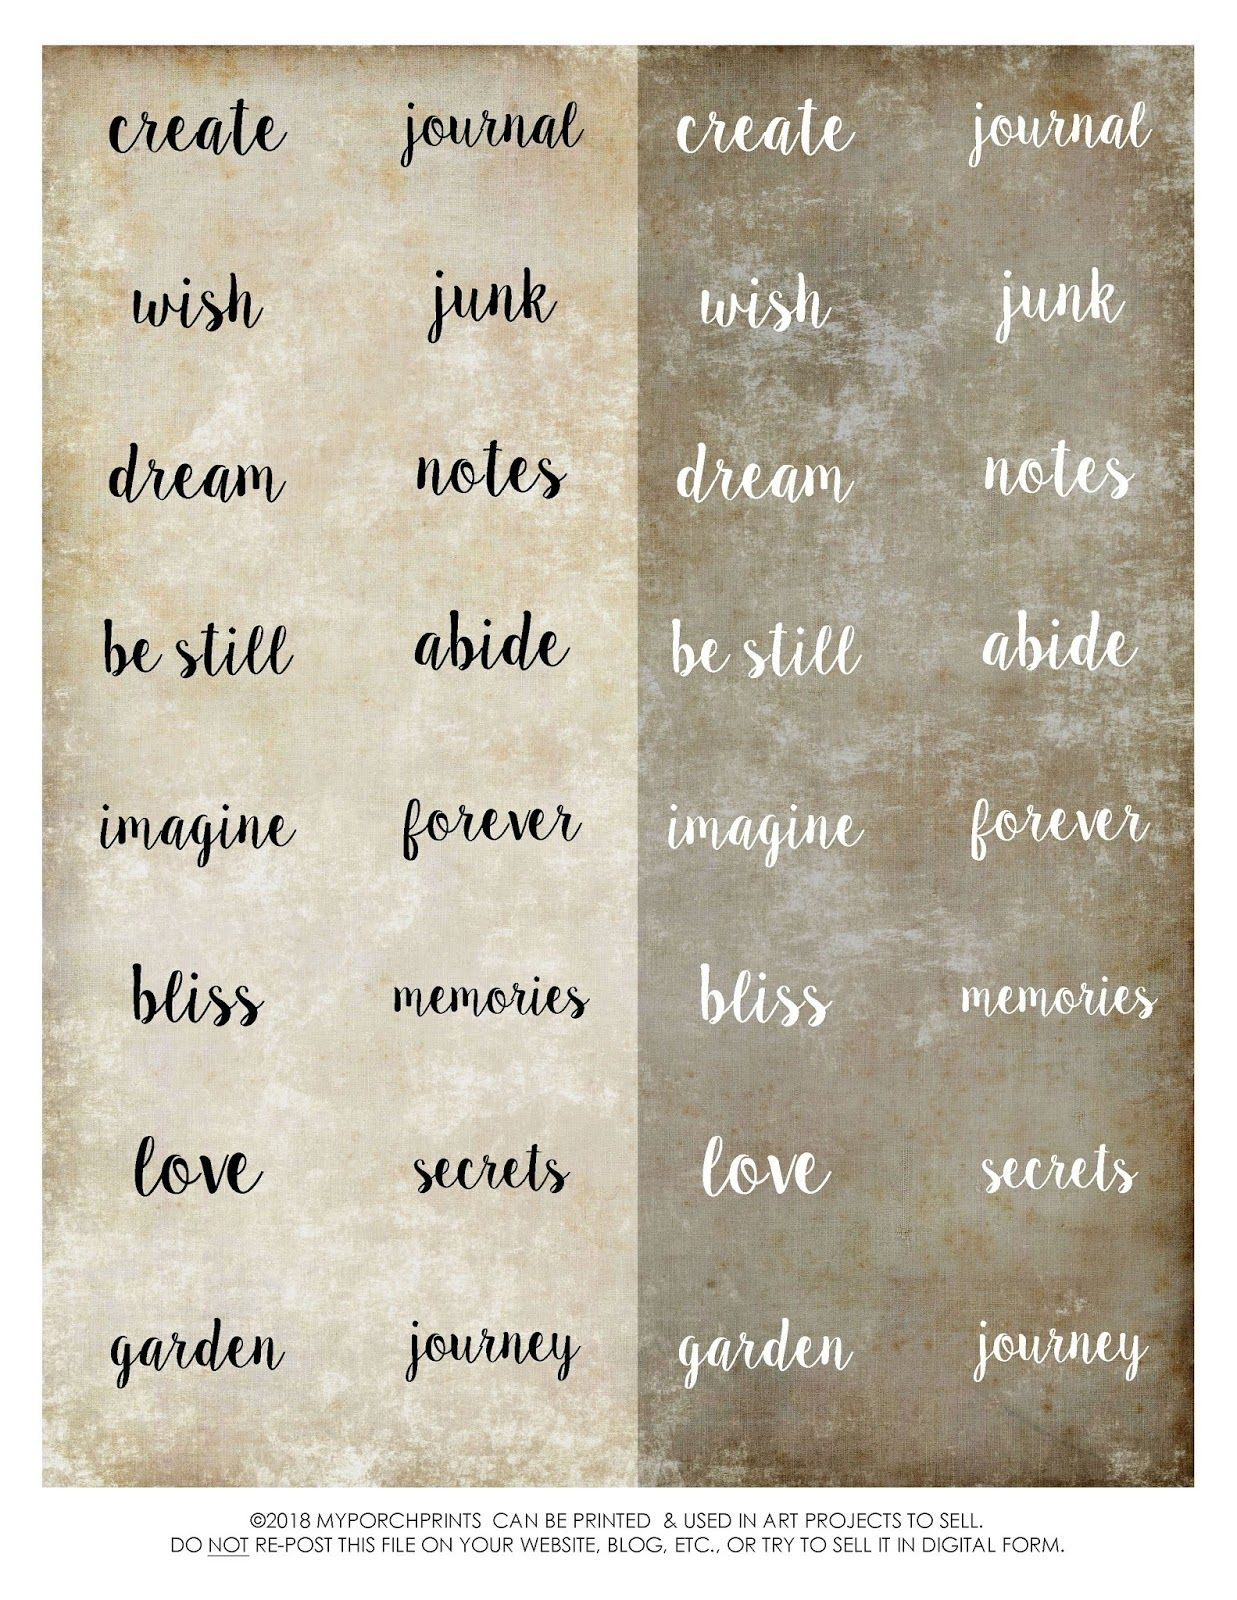 create journal create journal
wish junk wish junk
dream notes dream notes
be still abide be still abide
imagine forever imagine forever
bliss memories bliss memories
love secrets love secrets
garden journey garden journey
©2018 MYPORCHPRINTS CAN BE PRINTED & USED IN ART PROJECTS TO SELL.
DO NOT RE-POST THIS FILE ON YOUR WEBSITE, BLOG, ETC., OR TRY TO SELL IT IN DIGITAL FORM.